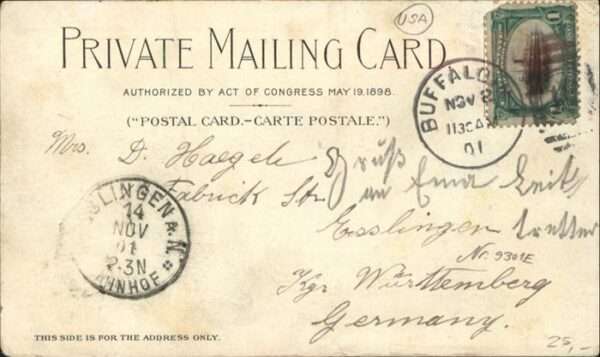 USA
PRIVATE MAILING CARD
AUTHORIZED BY ACT OF CONGRESS MAY 19, 1898.
("POSTAL CARD.–CARTE POSTALE.")
BUFFALO
NOV 2
1130AM
01
1
Mrs. D. Haegele
Gruß
an Erna
Fabrick Str.
Esslingen
Nr. 9301E
Kgr Württemberg
Germany.
SLINGEN A.N.
14
NOV
01
2-3N
AHNHOF
THIS SIDE IS FOR THE ADDRESS ONLY.
25,-